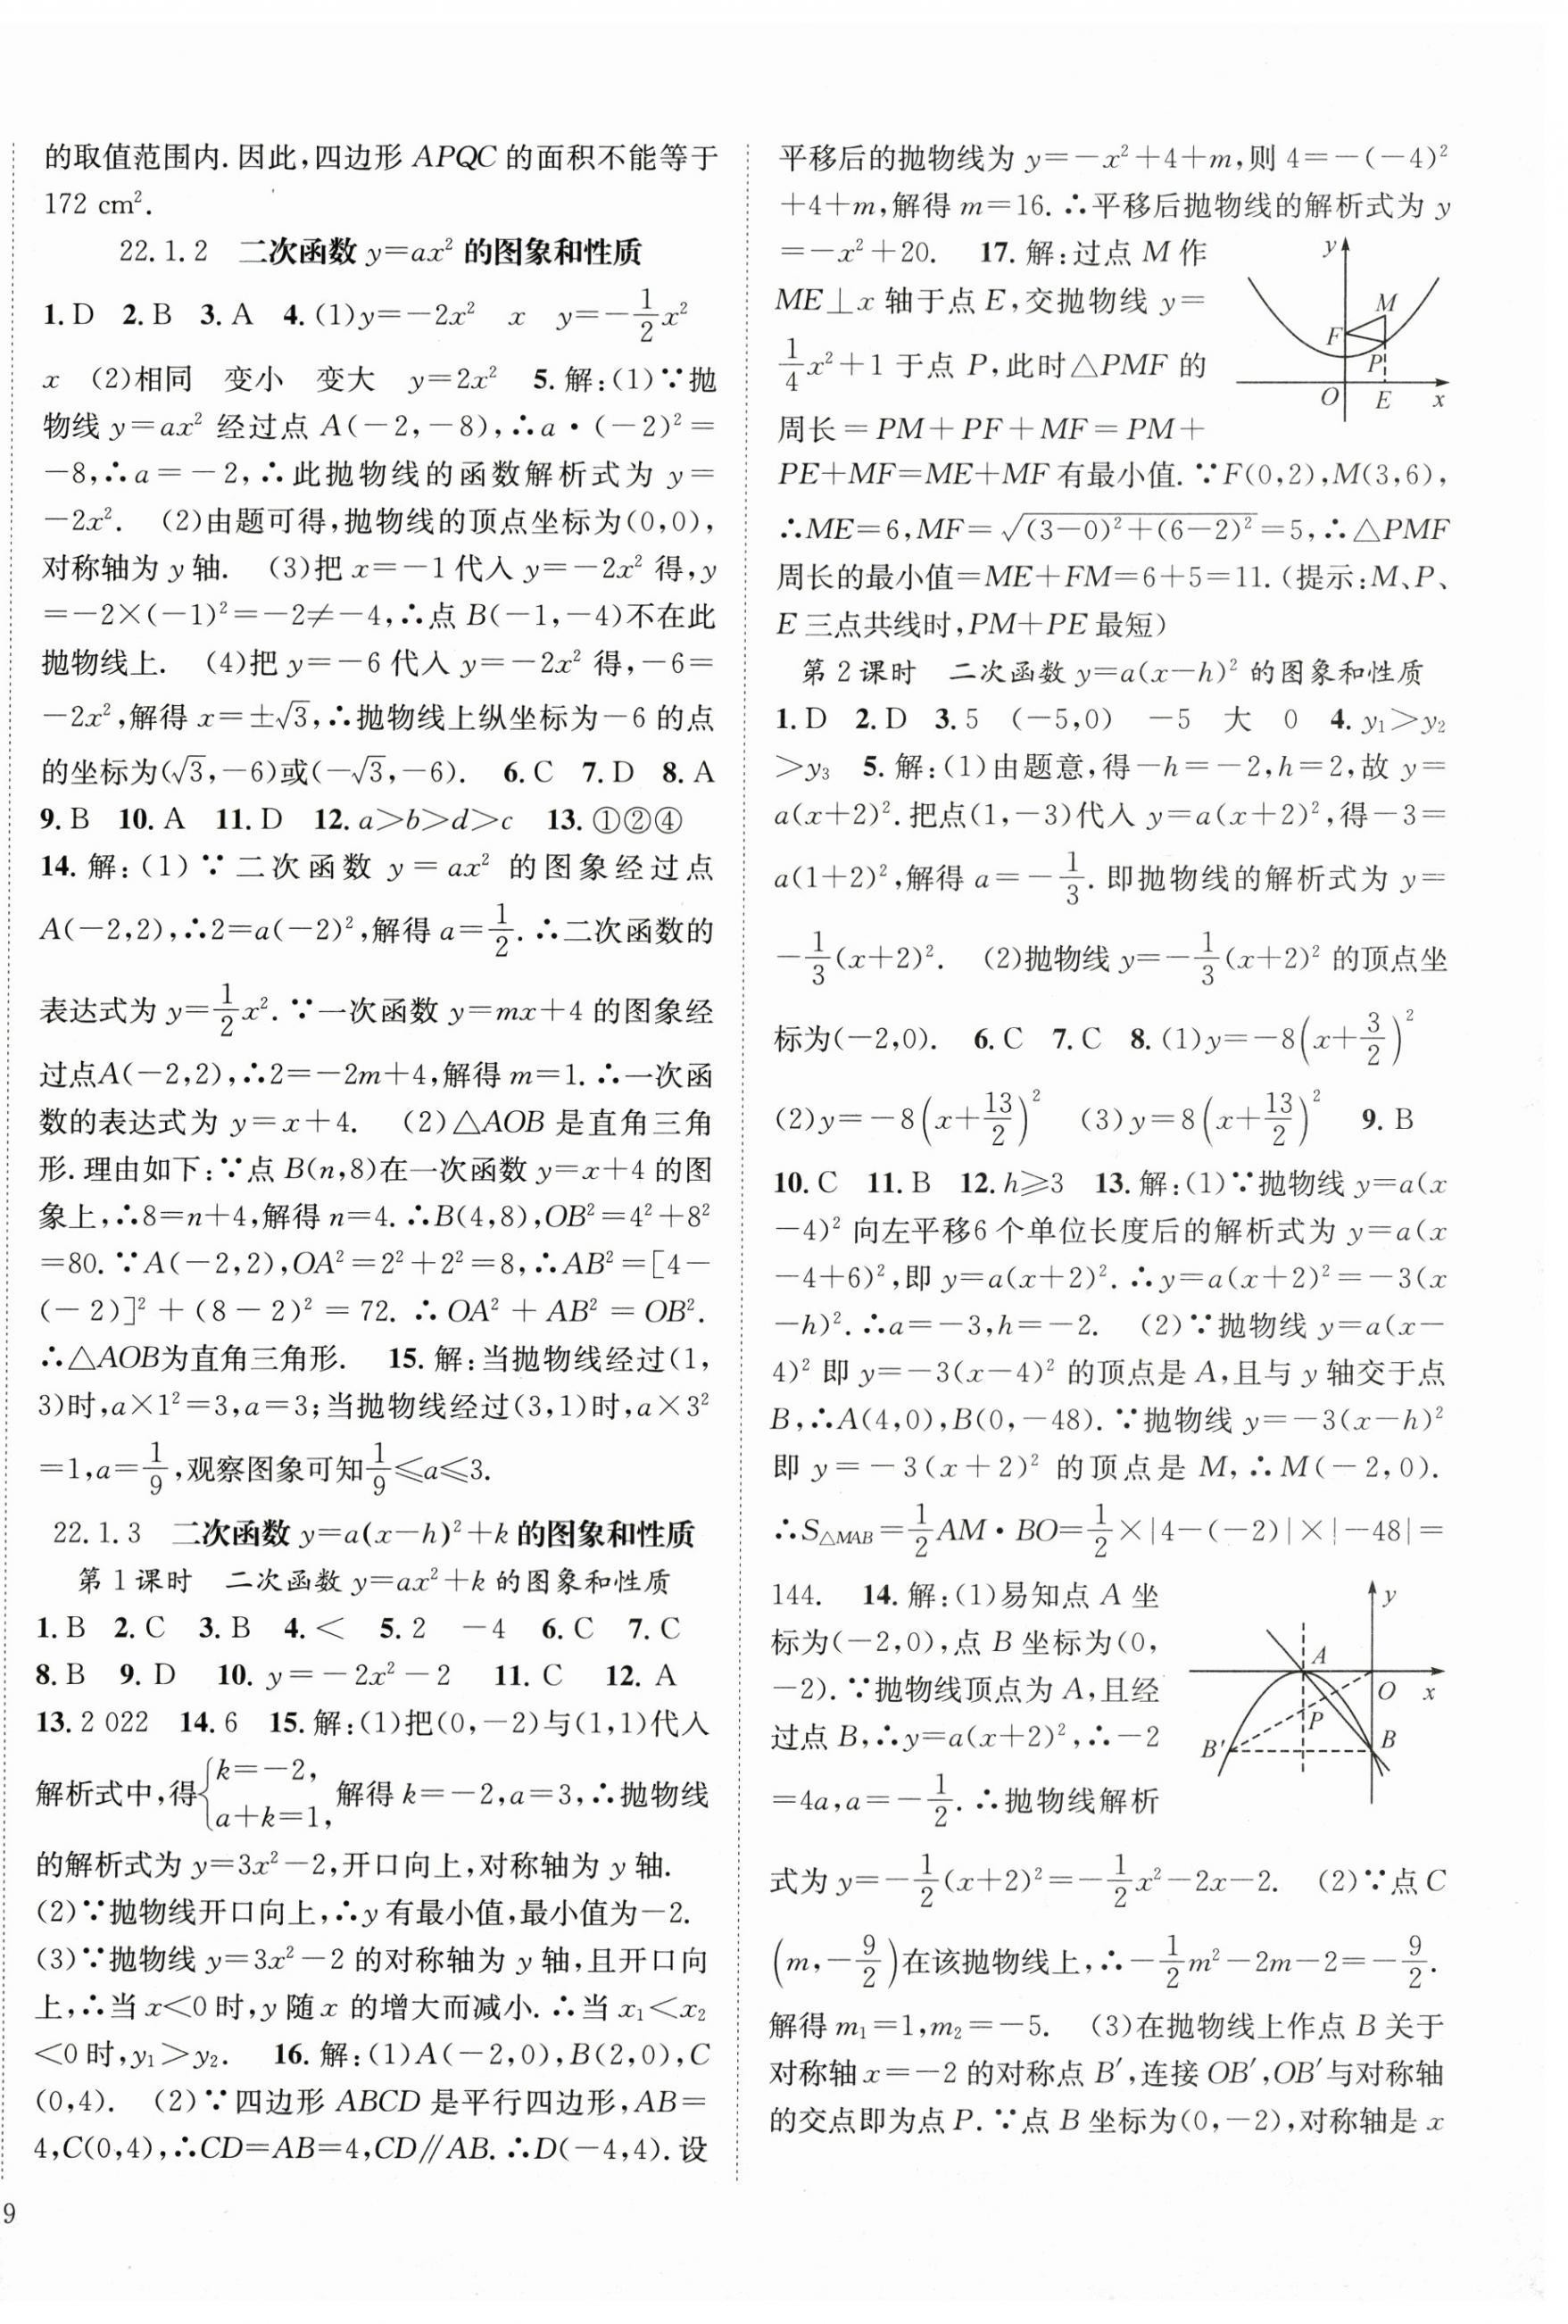 的取值范围内.因此,四边形 APQC 的面积不能等于
172 cm².
22.1.2 二次函数 y=ax² 的图象和性质
1. D 2. B 3. A 4. (1)y=-2x² x y=-1/2x²
x (2)相同 变小 变大 y=2x² 5. 解:(1)∵抛
物线 y=ax² 经过点 A(-2,-8),∴a·(-2)²=
-8,∴a=-2,∴此抛物线的函数解析式为 y=
-2x². (2)由题可得,抛物线的顶点坐标为(0,0),
对称轴为 y 轴. (3)把 x=-1代入 y=-2x² 得,y
=-2×(-1)²=-2≠-4,∴点 B(-1,-4)不在此
抛物线上. (4)把 y=-6代入 y=-2x² 得,-6=
-2x²,解得 x=±√3,∴抛物线上纵坐标为-6的点
的坐标为(√3,-6)或(-√3,-6). 6. C 7. D 8. A
9. B 10. A 11. D 12. a>b>d>c 13. ①②④
14. 解:(1)∵二次函数 y=ax² 的图象经过点
A(-2,2),∴2=a(-2)²,解得 a=1/2.∴二次函数的
表达式为 y=1/2x².∵一次函数 y=mx+4 的图象经
过点A(-2,2),∴2=-2m+4,解得 m=1.∴一次函
数的表达式为 y=x+4. (2)△AOB 是直角三角
形.理由如下:∵点 B(n,8)在一次函数 y=x+4 的图
象上,∴8=n+4,解得 n=4.∴B(4,8),OB²=4²+8²
=80.∵A(-2,2),OA²=2²+2²=8,∴AB²=[4-
(-2)]²+(8-2)²=72.∴OA²+AB²=OB².
∴△AOB为直角三角形. 15. 解:当抛物线经过(1,
3)时,a×1²=3,a=3;当抛物线经过(3,1)时,a×3²
=1,a=1/9,观察图象可知1/9≤a≤3.
22.1.3 二次函数 y=a(x-h)²+k 的图象和性质
第1课时 二次函数 y=ax²+k 的图象和性质
1. B 2. C 3. B 4. < 5. 2 -4 6. C 7. C
8. B 9. D 10. y=-2x²-2 11. C 12. A
13. 2 022 14. 6 15. 解:(1)把(0,-2)与(1,1)代入
解析式中,得{k=-2, a+k=1, 解得 k=-2,a=3,∴抛物线
的解析式为 y=3x²-2,开口向上,对称轴为 y 轴.
(2)∵抛物线开口向上,∴y 有最小值,最小值为-2.
(3)∵抛物线 y=3x²-2 的对称轴为 y 轴,且开口向
上,∴当 x<0时,y 随 x 的增大而减小.∴当 x₁<x₂
<0时,y₁>y₂. 16. 解:(1)A(-2,0),B(2,0),C
(0,4). (2)∵四边形 ABCD 是平行四边形,AB=
4,C(0,4),∴CD=AB=4,CD∥AB.∴D(-4,4).设
9
平移后的抛物线为 y=-x²+4+m,则 4=-(-4)²
+4+m,解得 m=16.∴平移后抛物线的解析式为 y
=-x²+20. 17. 解:过点 M 作
ME⊥x 轴于点 E,交抛物线 y=
1/4x²+1 于点 P,此时△PMF 的
周长=PM+PF+MF=PM+
y
M
F
P
O
E
x
PE+MF=ME+MF 有最小值.∵F(0,2),M(3,6),
∴ME=6,MF=√((3-0)²+(6-2)²)=5,∴△PMF
周长的最小值=ME+FM=6+5=11.(提示:M、P、
E 三点共线时,PM+PE 最短)
第2课时 二次函数 y=a(x-h)² 的图象和性质
1. D 2. D 3. 5 (-5,0) -5 大 0 4. y₁>y₂
>y₃ 5. 解:(1)由题意,得-h=-2,h=2,故 y=
a(x+2)².把点(1,-3)代入 y=a(x+2)²,得-3=
a(1+2)²,解得 a=-1/3.即抛物线的解析式为 y=
-1/3(x+2)². (2)抛物线 y=-1/3(x+2)² 的顶点坐
标为(-2,0). 6. C 7. C 8. (1)y=-8(x+3/2)²
(2)y=-8(x+13/2)² (3)y=8(x+13/2)² 9. B
10. C 11. B 12. h≥3 13. 解:(1)∵抛物线 y=a(x
-4)² 向左平移6个单位长度后的解析式为 y=a(x
-4+6)²,即 y=a(x+2)².∴y=a(x+2)²=-3(x
-h)².∴a=-3,h=-2. (2)∵抛物线 y=a(x-
4)² 即 y=-3(x-4)² 的顶点是 A,且与 y 轴交于点
B,∴A(4,0),B(0,-48).∵抛物线 y=-3(x-h)²
即 y=-3(x+2)² 的顶点是 M,∴M(-2,0).
∴S△MAB=1/2AM·BO=1/2×|4-(-2)|×|-48|=
144. 14. 解:(1)易知点 A 坐
标为(-2,0),点 B 坐标为(0,
-2).∵抛物线顶点为 A,且经
过点 B,∴y=a(x+2)²,∴-2
=4a,a=-1/2.∴抛物线解析
y
A
O
x
P
B′
B
式为 y=-1/2(x+2)²=-1/2x²-2x-2. (2)∵点 C
(m,-9/2)在该抛物线上,∴-1/2m²-2m-2=-9/2.
解得 m₁=1,m₂=-5. (3)在抛物线上作点 B 关于
对称轴 x=-2 的对称点 B′,连接 OB′,OB′与对称轴
的交点即为点 P.∵点 B 坐标为(0,-2),对称轴是 x